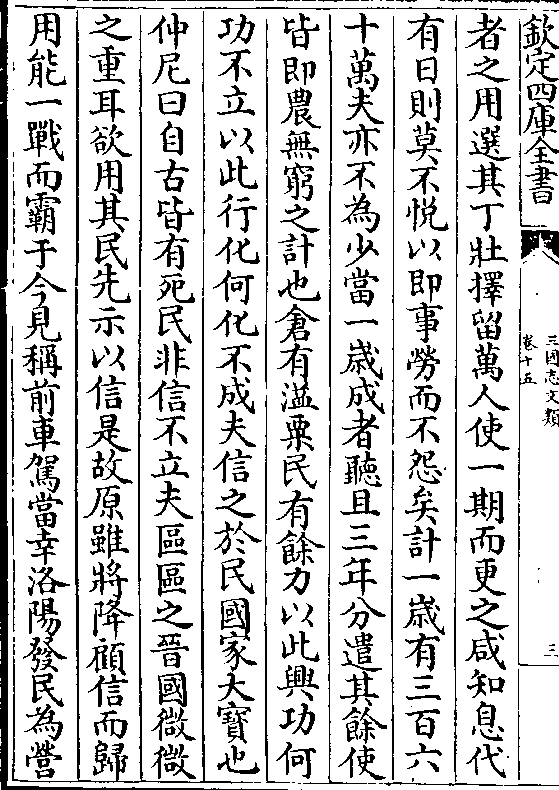 欽定四庫全書
三國志文類
卷十五
三
者之用選其丁壯擇留萬人使一期而更之咸知息代
有日則莫不悅以即事勞而不怨矣計一歲有三百六
十萬夫亦不為少當一歲成者聽且三年分遣其餘使
皆即農無窮之計也倉有溢粟民有餘力以此興功何
功不立以此行化何化不成夫信之於民國家大寶也
仲尼曰自古皆有死民非信不立夫區區之晉國微微
之重耳欲用其民先示以信是故原雖將降顧信而歸
用能一戰而霸于今見稱前車駕當幸洛陽發民為營